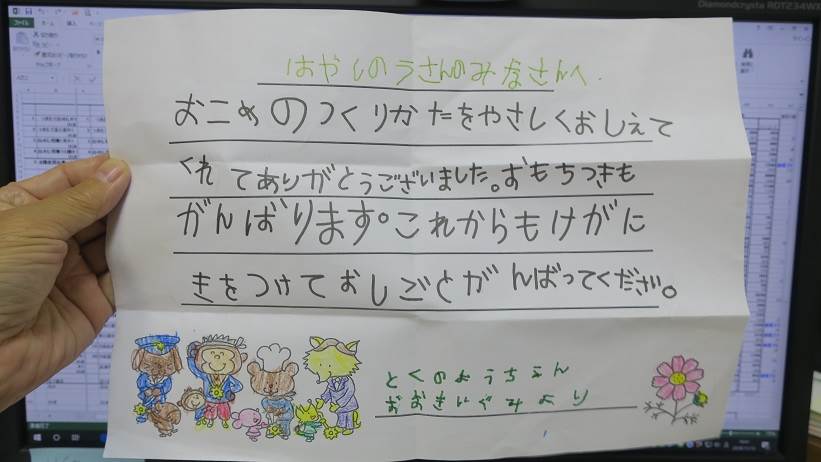 Diamondcrysta RDT234WX
はやしのうさんのみなさんへ.
おこめのつくりかたをやさしくおしえて
くれてありがとうございました。おもちつきも
がんばります。これからもけがに
きをつけておしごとがんばってくださ。
とくのようちえん
おおきいぐみより